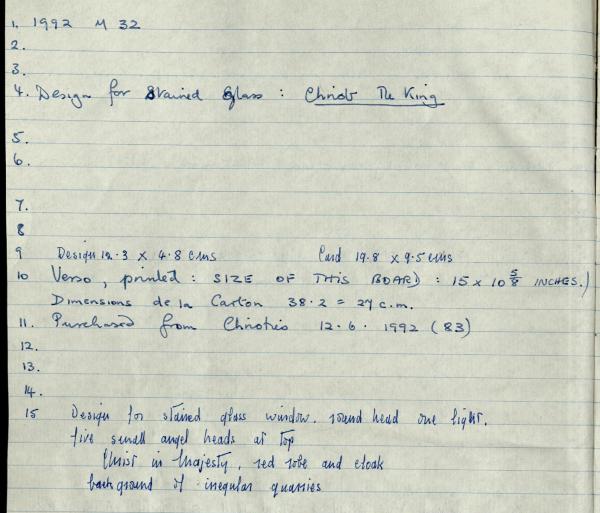 1. 1992 M 32
2.
3.
4. Design for Stained Glass : Christ The King
5.
6.
7.
8
9 Design 12.3 x 4.8 cms Card 19.8 x 9.5 cms
10 Verso, printed : SIZE OF THIS BOARD : 15 x 10 5/8 INCHES.)
Dimensions de la Carton 38.2 = 27 c.m.
11. Purchased from Christies 12.6.1992 (83)
12.
13.
14.
15 Design for stained glass window. round head one light.
five small angel heads at top
Christ in Majesty, red robe and cloak
background of irregular quarries